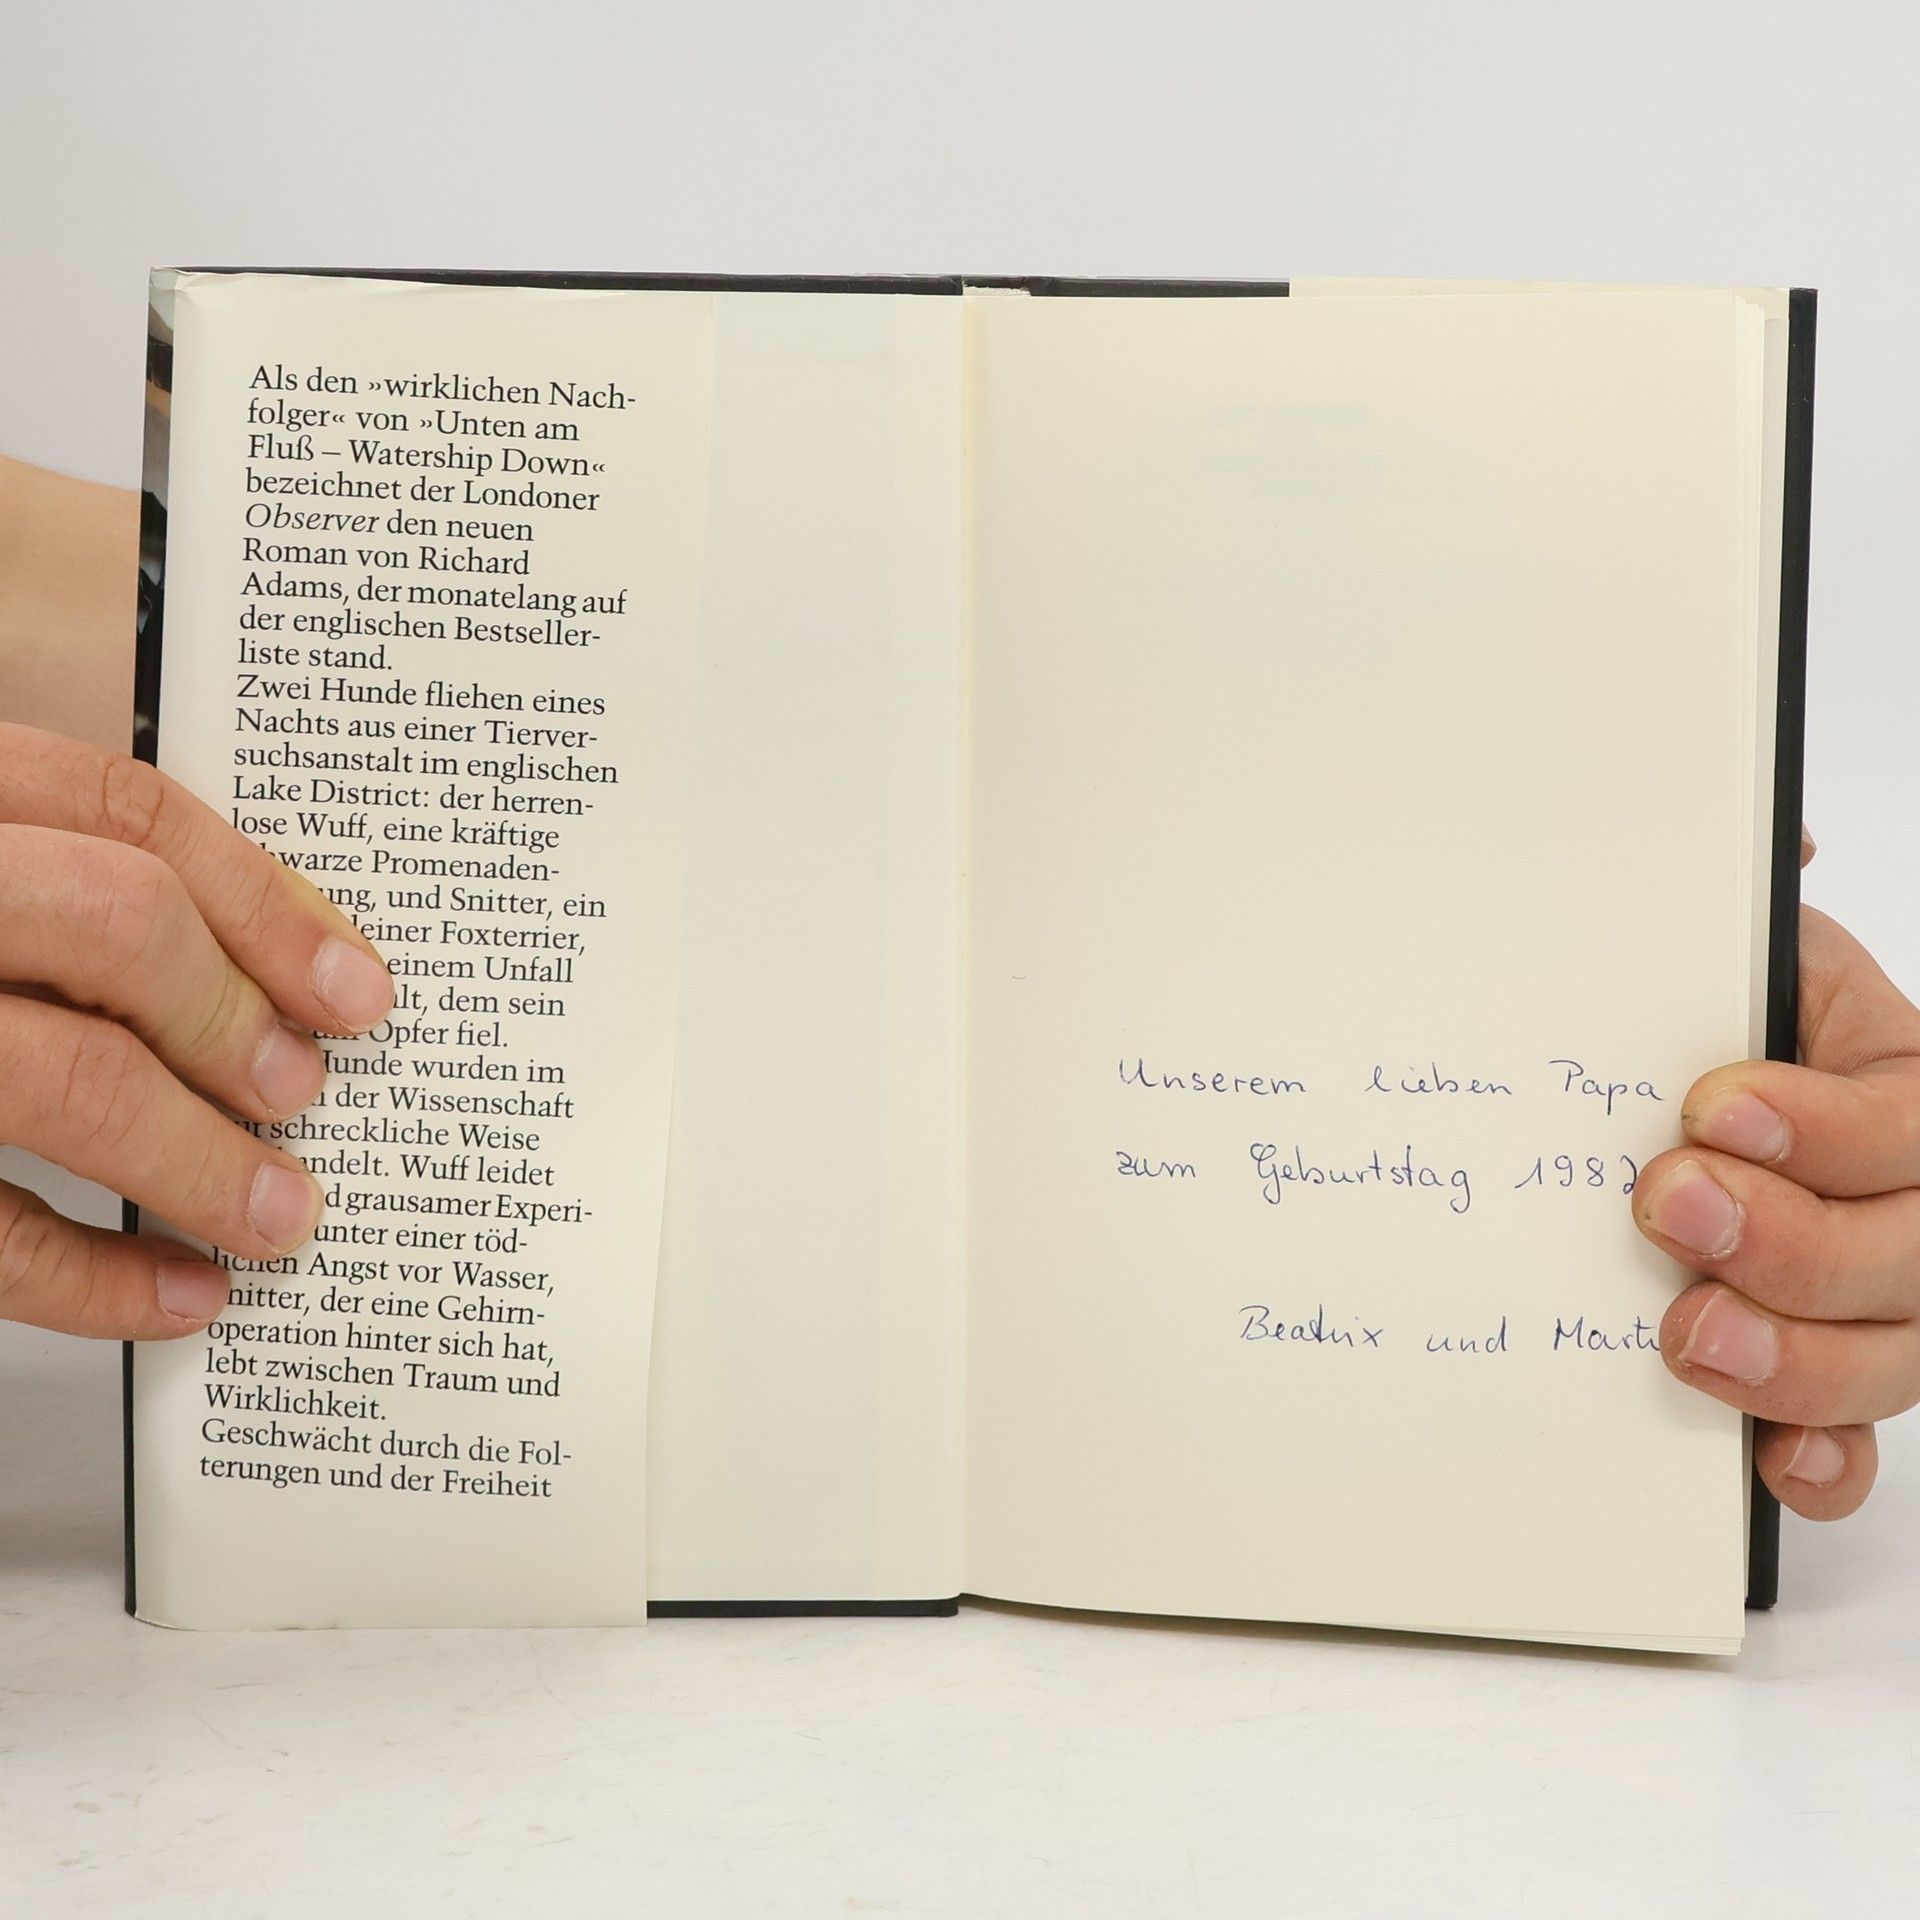 Als den »wirklichen Nach-
folger« von »Unten am
Fluß – Watership Down«
bezeichnet der Londoner
Observer den neuen
Roman von Richard
Adams, der monatelang auf
der englischen Bestseller-
liste stand.
Zwei Hunde fliehen eines
Nachts aus einer Tierver-
suchsanstalt im englischen
Lake District: der herren-
lose Wuff, eine kräftige
Promenaden-
und Snitter, ein
Foxterrier,
einem Unfall
dem sein
Opfer fiel.
wurden im
der Wissenschaft
schreckliche Weise
Wuff leidet
grausamer Experi-
unter einer töd-
lichen Angst vor Wasser,
der eine Gehirn-
operation hinter sich hat,
lebt zwischen Traum und
Wirklichkeit.
Geschwächt durch die Fol-
terungen und der Freiheit
Unserem lieben Papa
zum Geburtstag 1982
Beatrix und